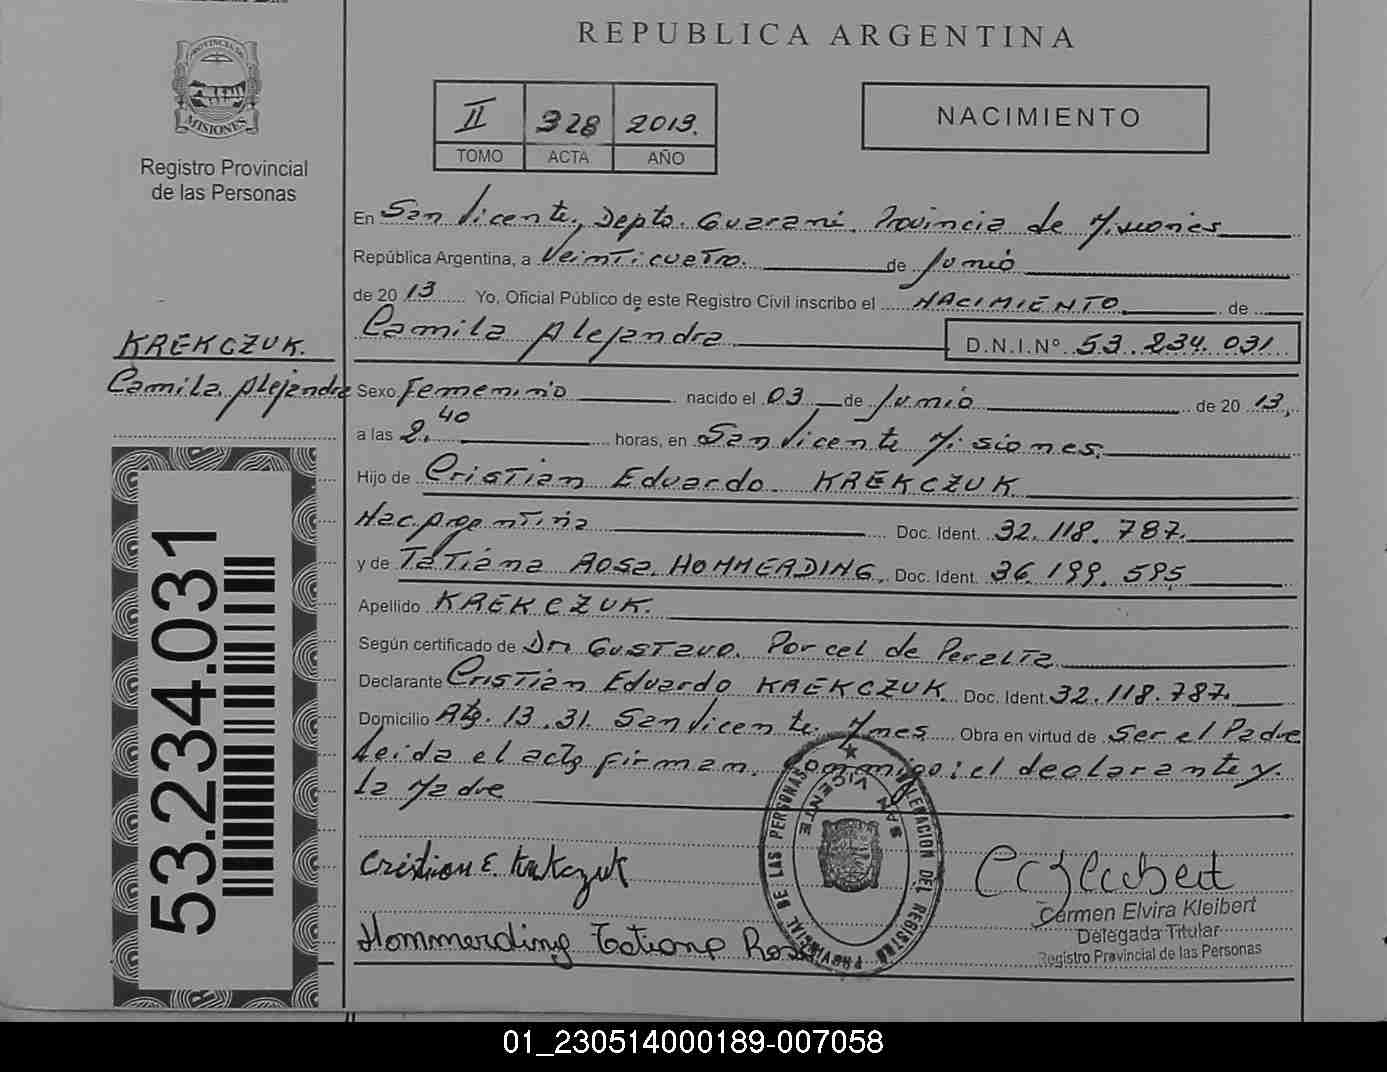 REPUBLICA ARGENTINA
PROVINCIA DE
MISIONES
Registro Provincial
de las Personas
II 328 2013.
TOMO ACTA AÑO
NACIMIENTO
En San Vicente, Depto. Guaraní. Provincia de Misiones
República Argentina, a Veinticuatro. de Junio
de 2013 Yo, Oficial Público de este Registro Civil inscribo el NACIMIENTO de
Camila Alejandra D.N.I.Nº 53.234.031
KREKCZUK.
Camila Alejandra
Sexo Femenino nacido el 03 de Junio de 2013,
a las 2,40 horas, en San Vicente Misiones.
Hijo de Cristian Eduardo KREKCZUK
Nac. Argentina Doc. Ident. 32.118.787.
y de Tatiana Rosa HOMMERDING. Doc. Ident. 36.199.595
Apellido KREKCZUK.
Según certificado de Dr. Gustavo Porcel de Peralta
Declarante Cristian Eduardo KREKCZUK. Doc. Ident. 32.118.787.
Domicilio 13.31. San Vicente. Mnes Obra en virtud de Ser el Padre
Leida el acta firman conmigo: el declarante y
La Madre
53.234.031
SAN VICENTE
DEL REGISTRO PROVINCIAL DE LAS PERSONAS
Cristian E. Krekczuk
Hommerding Tatiana Rosa
Carmen Elvira Kleibert
Delegada Titular
Registro Provincial de las Personas
01_230514000189-007058